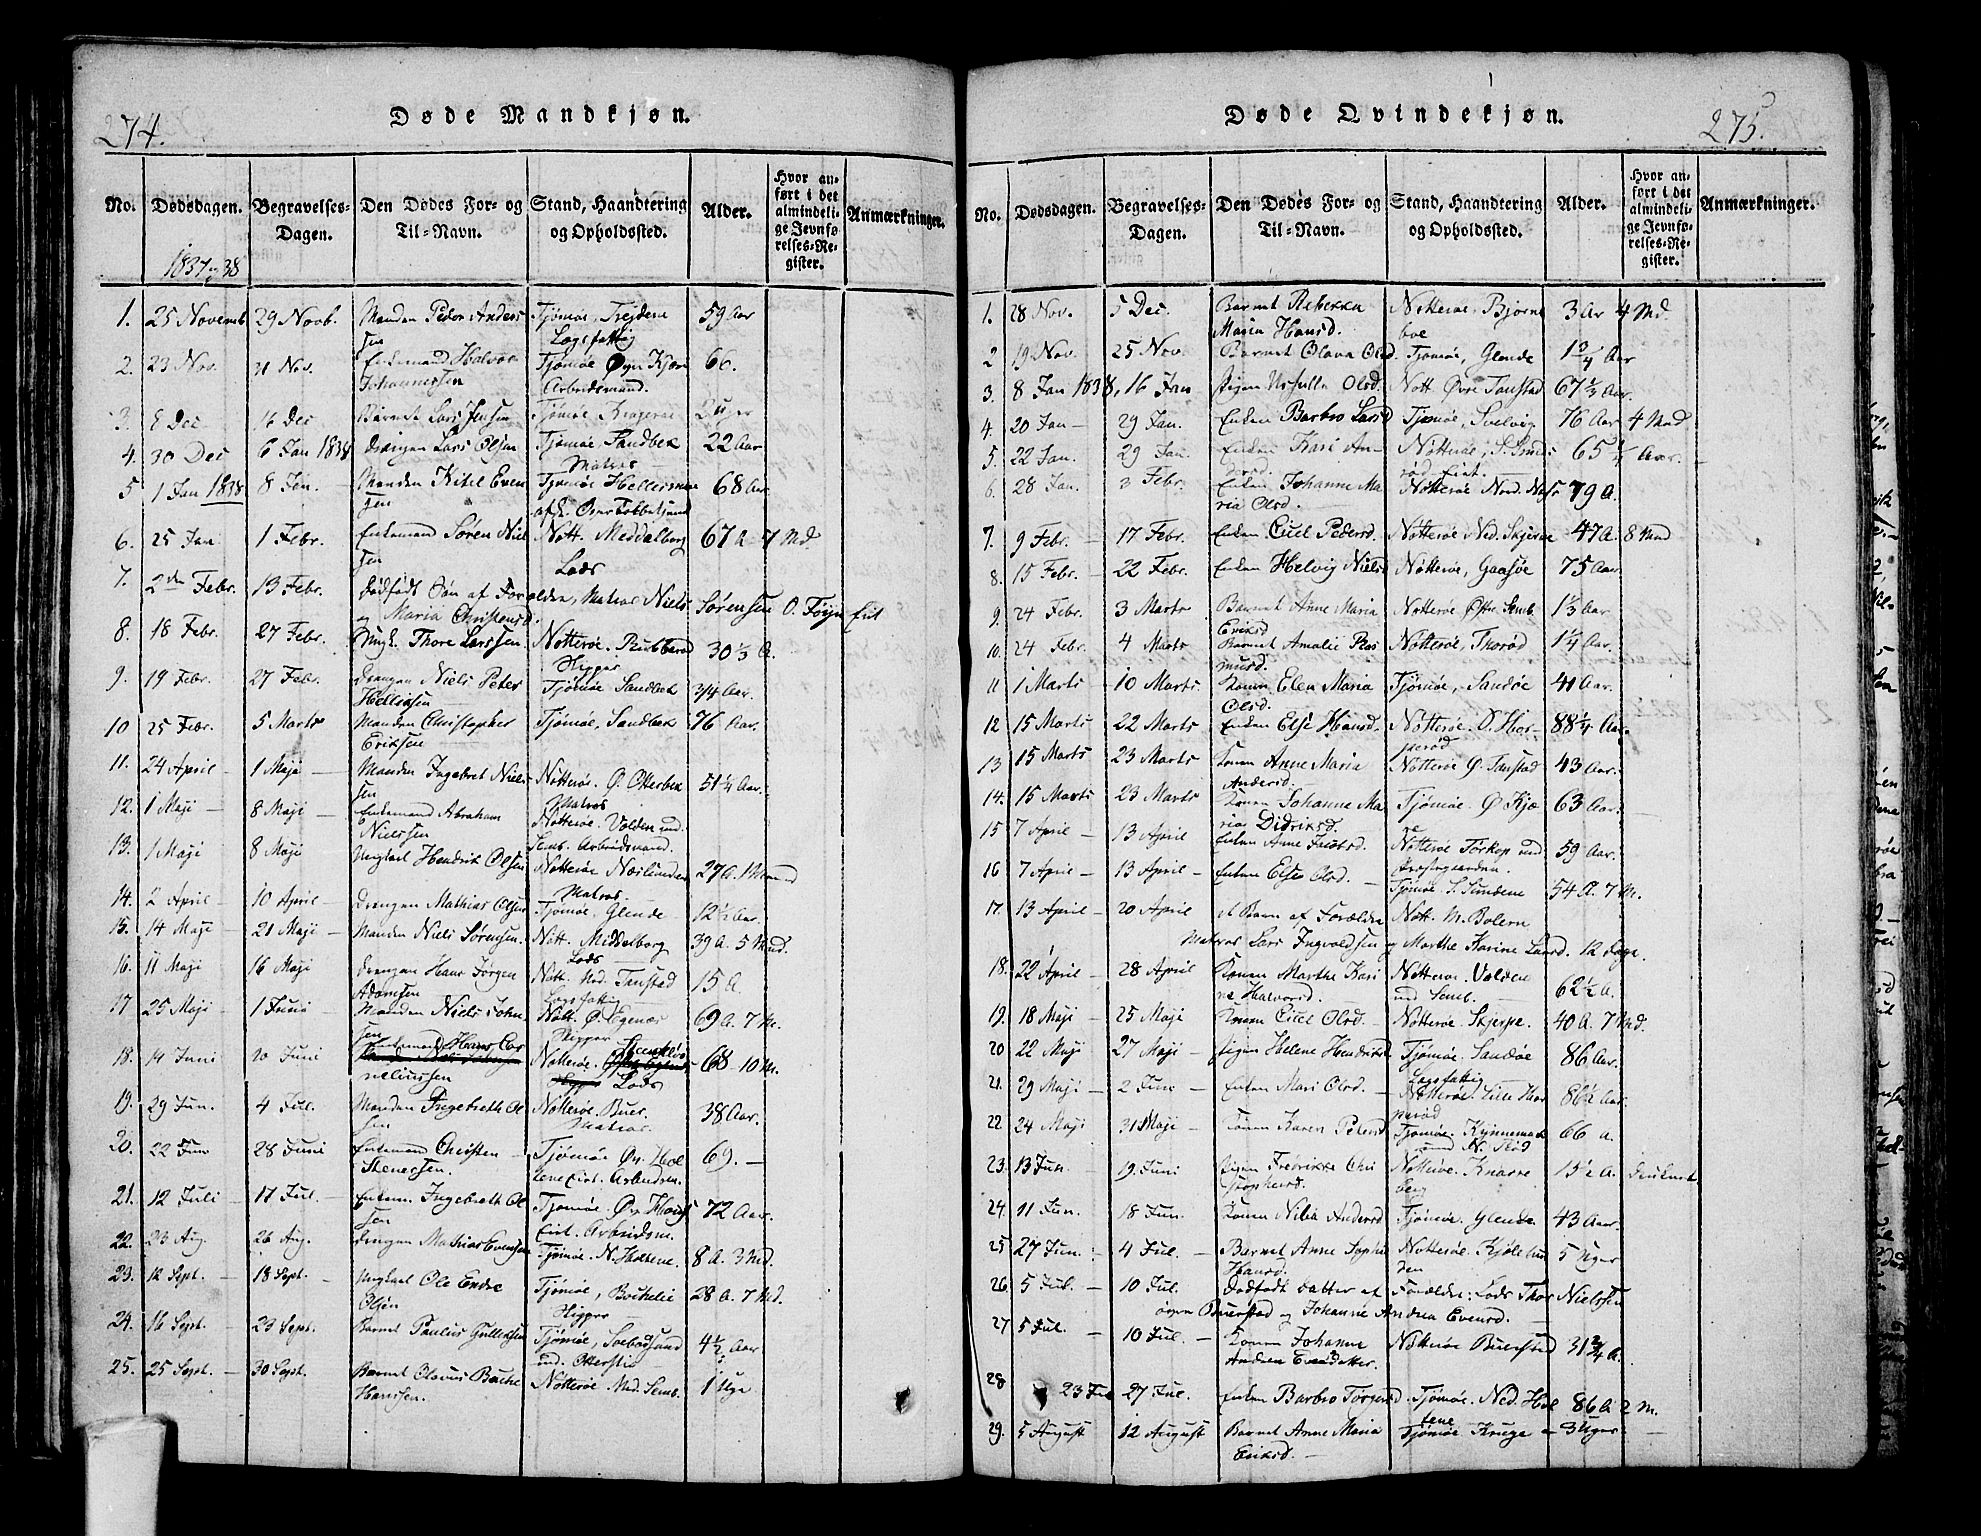 274.
Døde Mandkjøn.
No. Dødsdagen. Begravelses-Dagen. Den Dødes For- og Til-Navn. Stand, Haandtering og Opholdssted. Alder. Hvor anført i det almindelige Jevnførelses-Register. Anmærkninger.
1837 & 38
1. 25 Novemb 29 Novb. Manden Peder Anderssen Tjømøe, Lagsfattig 59 Aar
2. 23 Nov. Nov. Enkemand Halvor Johannessen Tjømøe Øvre Kjøre Arbeidsmand. 66.
3. 8 Dec 16 Dec Barnet Lars Jensen Tjømøe
4. 30 Dec 6 Jan 1838 Drengen Lars Olsen Tjømøe Sandbek Matros 22 Aar
5 1 Jan 1838. 8 Jan. Manden Kitel Evensen Tjømøe 68 Aar
6. 25 Jan 1 Febr. Enkemand Søren Nielsen Nøtt. Meddelborg Lods 67 A 7 Md.
7. 2den Febr. 13 Febr. Dødfødt Søn af Forælderne, Matros Niels Sørensen O. Føyn Eie
og Maria Christensd.
8. 18 Febr. 27 Febr. Ungk. Thore Larssen Nøtterøe. Skipper 30 1/3 A.
9. 19 Febr. 27 Febr. Drengen Niels Peter Hellesen Tjømøe Sandbek 3/4 Aar.
10 25 Febr. 5 Marts Manden Christopher Eriksen Tjømøe, Sandbek 76 Aar.
11. 24 April 1 Maji Manden Ingebret Nielssen Nøtterøe. Ø. Otterbek Matros 51 1/4 Aar.
12. 1 Maji 8 Maji Enkemand Abraham Nielssen Nøtterøe. Volden und. Semb. Arbeidsmand.
13. 1 Maji 8 Maji Ungkarl Hendrik Olsen Nøtterøe Matros. 27 A. 1 Maaned
14. 2 April 10 April Drengen Mathias Olsen Tjømøe. Glende 12 1/2 Aar
15. 14 Maji 21 Maji Manden Niels Sørensen. Nøtt. Middelborg Lods 39 A. 5 Md.
16. 11 Maji 16 Maji Drengen Hans Jørgen Adamsen Nøtt. Ned. Tanstad Lagsfattig 15 A.
17 25 Maji 1 Juni Manden Niels Johnsen Nøtt. Ø. Egenæs Skipper 69 A. 7 M.
18. 14 Juni 20 Juni Enkemand Hans Corneliussen Nøtterøe. Lods 68 - 10 M.
19. 29 Jun. 4 Jul. Manden Ingebreth Olsen Nøtterøe. Buer. Matros. 38 Aar.
20. 22 Jun 28 Juni Enkemand Christen Stenersen. Tjømøe Øv. Holtene Eie. Arbeidsm. 69.
21. 12 Juli 17 Jul. Enkem. Ingebreth Olsen Tjømøe. Øv. Eie. Arbeidsm. 72 Aar.
22. 23 Aug. 26 Aug. Drengen Mathias Evensen Tjømøe. N. Holtene. 8 A. 3 Md.
23. 12 Sept. 18 Sept. Ungkarl Ole Endre Olsen Tjømøe, Skipper 28 A. 7 Md.
24. 16 Sept. 23 Sept. Barnet Paulus Gulleksen Tjømøe, und. 4 1/2 Aar
25. 25 Sept. 30 Sept. Barnet Olavus Hanssen. Nøtterøe. Ned. Semb. 1 Uge
275.
Døde Qvindekjøn.
No. Dødsdagen. Begravelses-Dagen. Den Dødes For- og Til-Navn. Stand, Haandtering og Opholdssted. Alder. Hvor anført i det almindelige Jevnførelses-Register. Anmærkninger.
1. 28 Nov. 5 Dec. Barnet Rebekka Maria Hansd. Nøtterøe, Bjørneboe 3 Ar 4 Md
2 19 Nov. 25 Nov. Barnet Olava Olsd. Tjømøe, Glende 1 3/4 Aar
3. 8 Jan 1838, 16 Jan Pigen Ursulla Olsd. Nøtt Øvre Tanstad 67 1/2 Aar
4. 20 Jan 29 Jan. Enken Barbro Larsd Tjømøe, Solvig 76 Aar 4 Md
5. 22 Jan. 29 Jan Enken Kari Andersd. Nøtterøe, 65 1/4 Aar.
6. 28 Jan. 3 Febr. Enken Johanne Maria Olsd. Nøtterøe Nord. 79 A.
7. 9 Febr. 17 Febr. Enken Citel Pedersd. Nøtterøe Ned. Skjerpe 47 A. 8 Md
8. 15 Febr. 22 Febr. Enken Helvig Nielsd Nøtterøe, Gaasøe 75 Aar.
9. 24 Febr. 3 Marts Barnet Anne Maria Eriksd Nøtterøe Østr. Semb 1 1/3 Aar
10. 24 Febr. 4 Marts Barnet Amalie Rasmusd. Nøtterøe, Thorød 1 1/4 Aar.
11 1 Marts 10 Marts Konen Elen Maria Olsd. Tjømøe, Sandøe 41 Aar.
12 15 Marts 22 Marts Enken Else Hansd. Nøtterøe. O. Horperød 88 1/4 Aar
13 15 Marts 23 Marts Konen Anne Maria Andersd. Nøtterøe Ø. Tanstad 43 Aar.
14. 15 Marts 23 Marts Konen Johanne Maria Didriksd. Tjømøe. Ø Kjøre 63 Aar.
15 7 April 13 April Enken Anne Nøtterøe und 59 Aar.
16 7 April 13 April Enken Else Olsd. Tjømøe S. Sundene 54 A. 7 M.
17. 13 April 20 April et Barn af Forældre Nøtt. M. Bolern
Matros Lars Ingvoldsen og Marthe Karine Larsd. 12 Dage.
18. 22 April 28 April Konen Marthe Karine Halvorsd. Nøtterøe. Volden und Semb. 62 1/2 A.
19. 18 Maji 25 Maji Konen Citel Olsd. Nøtterøe. Skjerpe. 40 A. 7 Md.
20 22 Maji 27 Maji Pigen Helene Hendriksd Tjømøe. Sandøe Lagsfattig 86 Aar.
21. 29 Maji 2 Jun Enken Mari Olsd. Nøtterøe. Lille Horperød 86 1/2 Aar.
22 24 Maji 31 Maji Konen Karen Petersd Tjømøe. 66 A.
23. 13 Jun. 19 Juni Pigen Fredrikke Christophersd. Nøtterøe. Knarreberg 15 1/2 A. Druknet
24. 11 Jun. 18 Jun. Konen Nilia Andersd Tjømøe. Glende 43 Aar.
25 27 Jun. 4 Jul. Barnet Anne Sophie Hansd. Nøtterøe. 5 Uger
26. 5 Jul. 10 Jul. Dødfødt Datter af Forældre: Lods Thor Nielssen
øvre Buerstad og Johanne Andrea Evensd.
27 5 Jul. 10 Jul. Konen Johanne Andrea Evensdatter. Nøtterøe Buerstad 31 3/4 A.
28 23 Jul 27 Jul. Enken Barbro Torgersd. Tjømøe. Ned. Holtene 86 A. 2 M.
29. 5 August 12 August Barnet Anne Maria Eriksd. Tjømøe 3 Uger